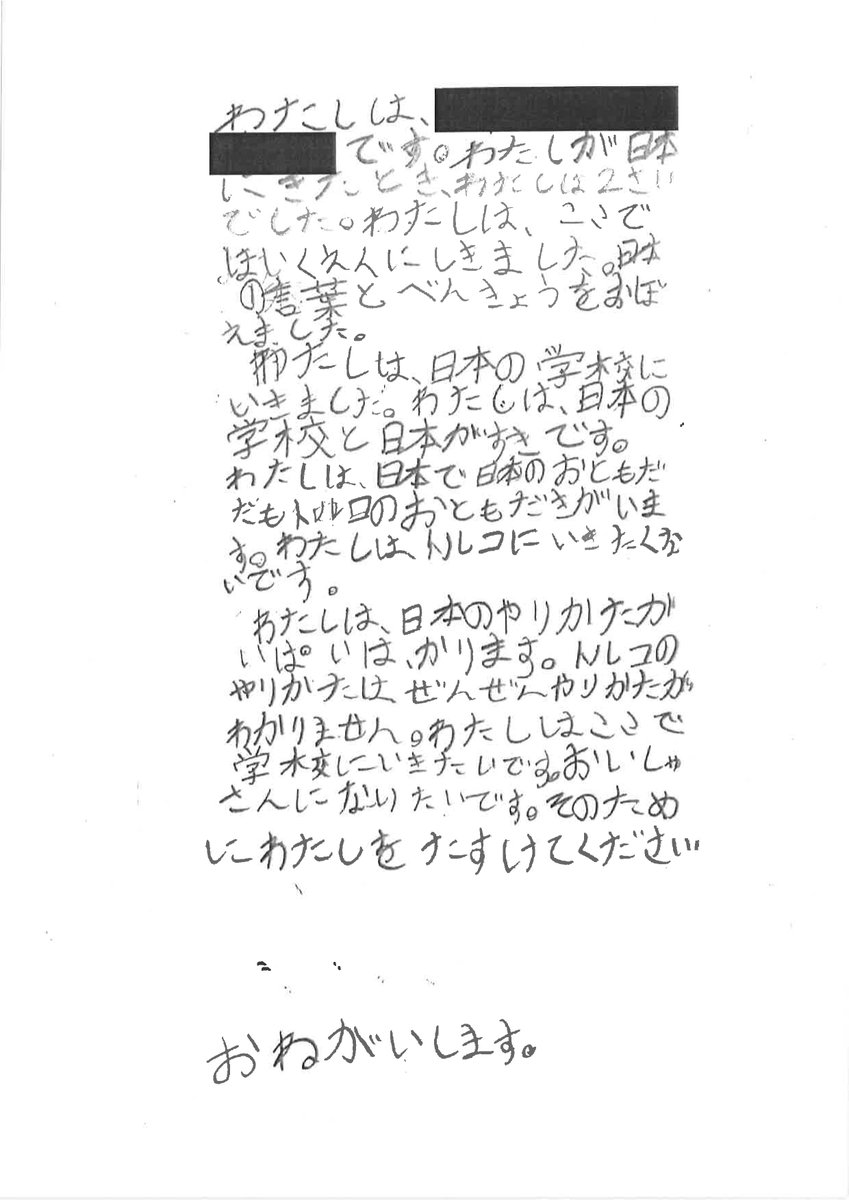 わたしは、
です。わたしが日本
にきたとき、わたしは2さい
でした。わたしは、ここで
ほいくえんにしきました。日本
の言葉とべんきょうをおぼ
えました。
わたしは、日本の学校に
いきました。わたしは、日本の
学校と日本がすきです。
わたしは、日本で日本のおともだ
だもトルコのおともだきがいま
す。わたしは、トルコにいきたくな
いです。
わたしは、日本のやりかたが
いぱいは、かります。トルコの
やりかたは、ぜんぜんやりかたが
わかりません。わたしはここで
学校にいきたいです。おいしゃ
さんになりたいです。そのため
にわたしをたすけてください
おねがいします。